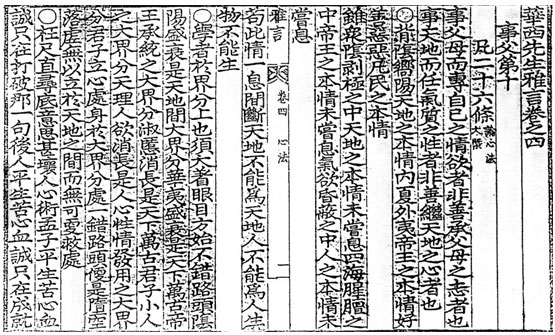 華西先生雅言卷之四
事父第十
凡二十六條論心法大槩
事父母而專自己之情欲者非善承父母之志者也
事天地而任氣質之性者非善繼天地之心者也
○陰嚮陽天地之本情內夏外夷帝王之本情好
善惡惡生民之本情
雖衆陰剝極之中天地之本情未嘗息四海腥膻之
中帝王之本情未嘗息氣欲昏蔽之中人之本情未
嘗息
雅言 卷四 心法 一
苟此情一息間斷天地不能爲天地人不能爲人生
物不能生
○學者於界分上也須大著眼目方始不錯路頭陰
陽盛衰是天地間大界分華夷盛衰是天下萬古帝
王承統之大界分淑慝消長是天下萬古君子小人
之大界分天理人欲消長是人心性情發用之大界
分君子立心處身於大界分處一錯路頭便是墮
落處無以立於天地之間而無可救處
○枉尺直尋底意思甚壞人心術孟子平生苦心血
誠只在打破那一句後人平生苦心血誠只在成就